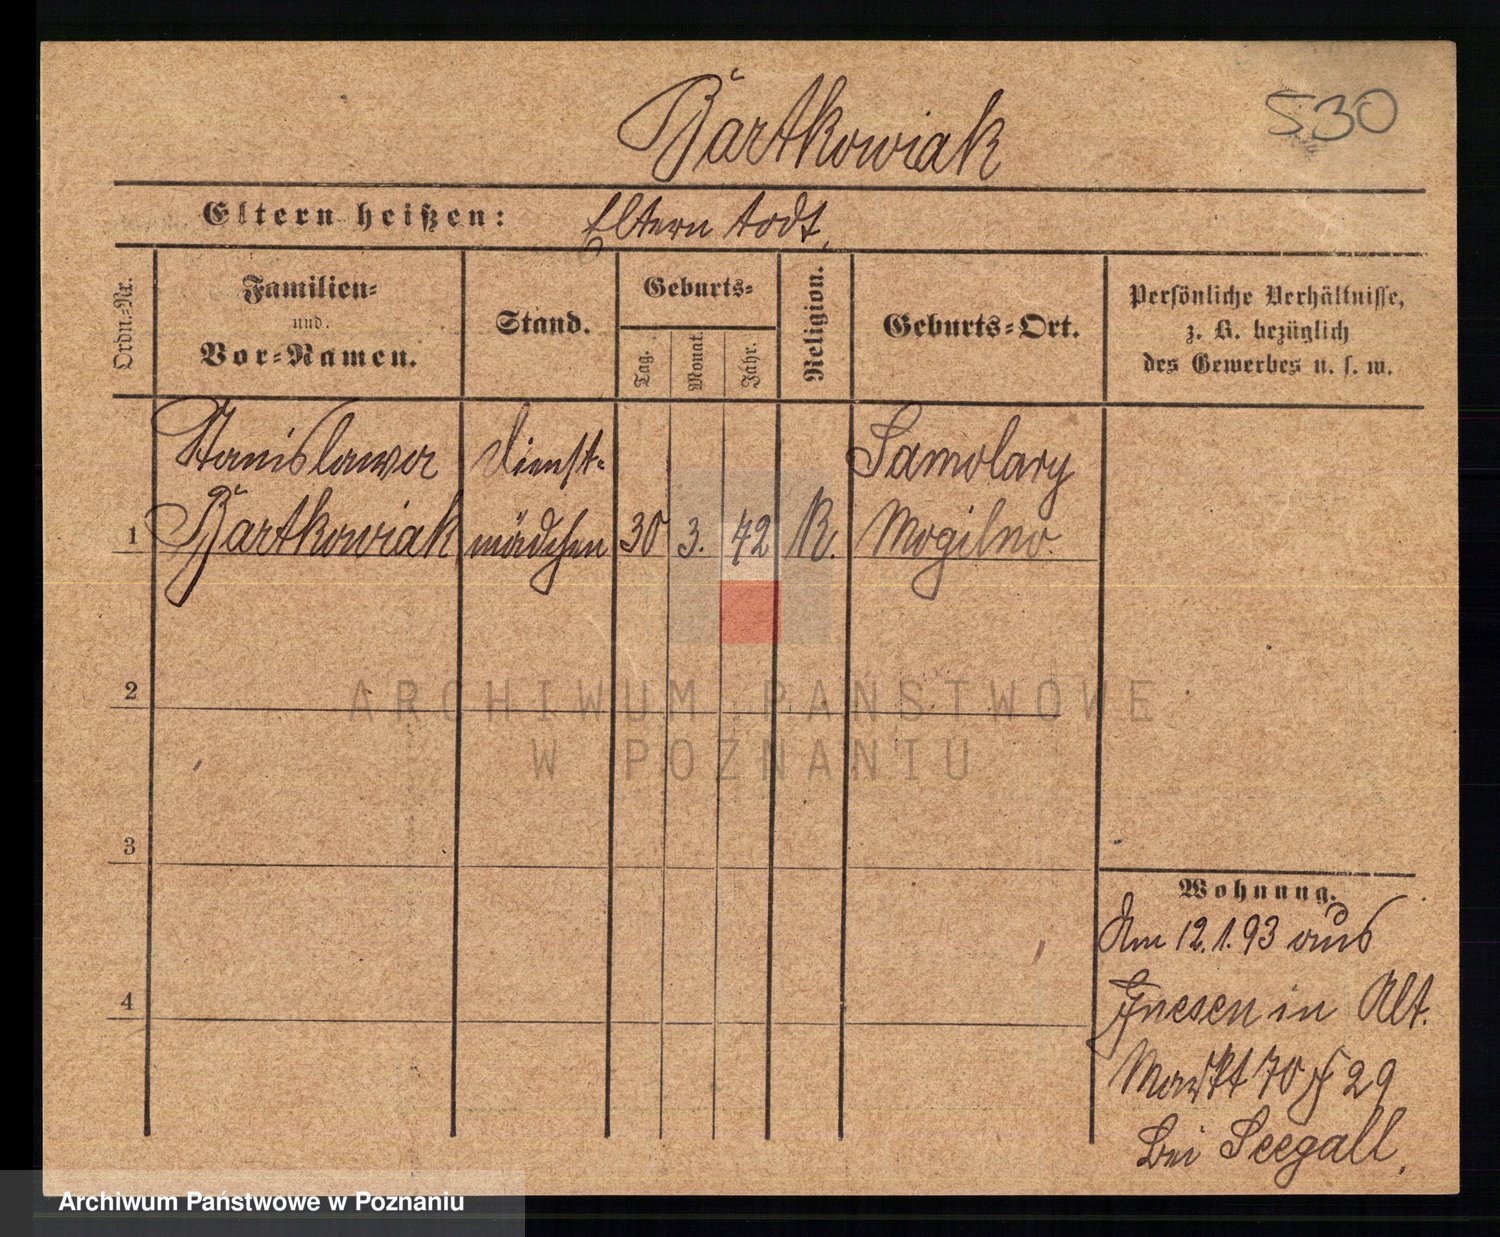 Bartkowiak
530
Eltern heißen: Eltern todt.
Ordn.-Nr.
Familien-
und
Vor-Namen.
Stand.
Geburts-
Tag.
Monat.
Jahr.
Religion.
Geburts-Ort.
Persönliche Verhältnisse,
z. B. bezüglich
des Gewerbes u. s. w.
Stanislawa dienst- Samolary
1 Bartkowiak mädchen 30 3. 72 K. Mogilno.
2
ARCHIWUM PAŃSTWOWE
W POZNANIU
3
Wohnung.
Am 12.1.93 aus
4
Gnesen in Alt.
Markt 70 29
bei Seegall.
Archiwum Państwowe w Poznaniu